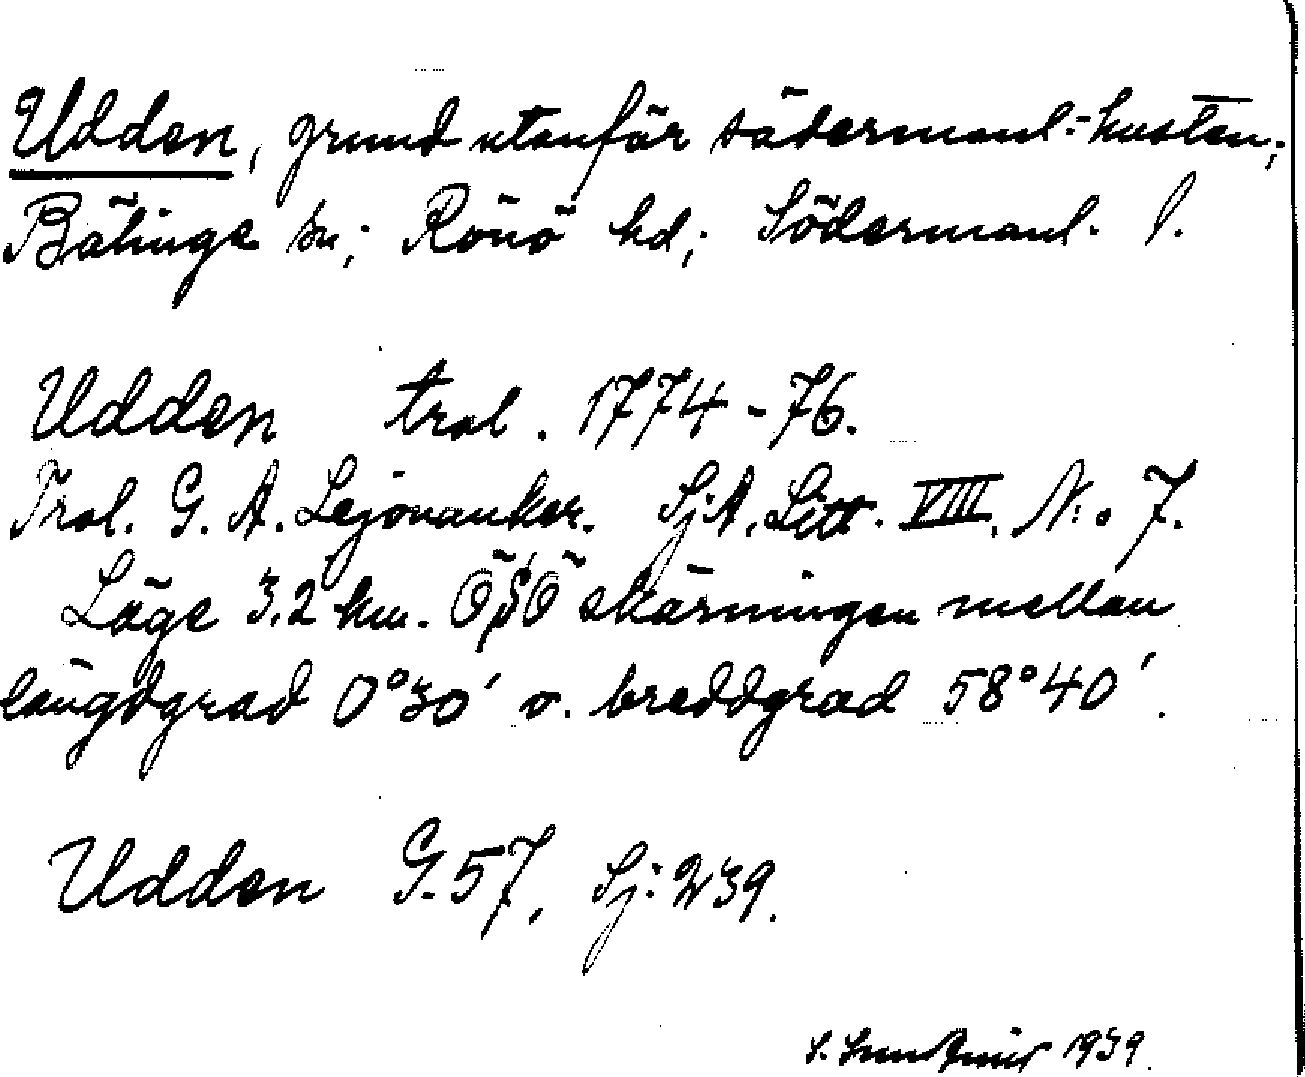 Udden, grund utanför södermanl.-kusten;
Bälinge sn; Rönö hd; Södermanl. l.
Udden trol. 1774-76.
Trol. G. A. Lejonanker. SjA. Litt. VIII. N:o 7.
Läge 3,2 km. ÖSÖ skärningen mellan
längdgrad 0°30' o. breddgrad 58°40'.
Udden G.57, Sj:239.
S. 1939.